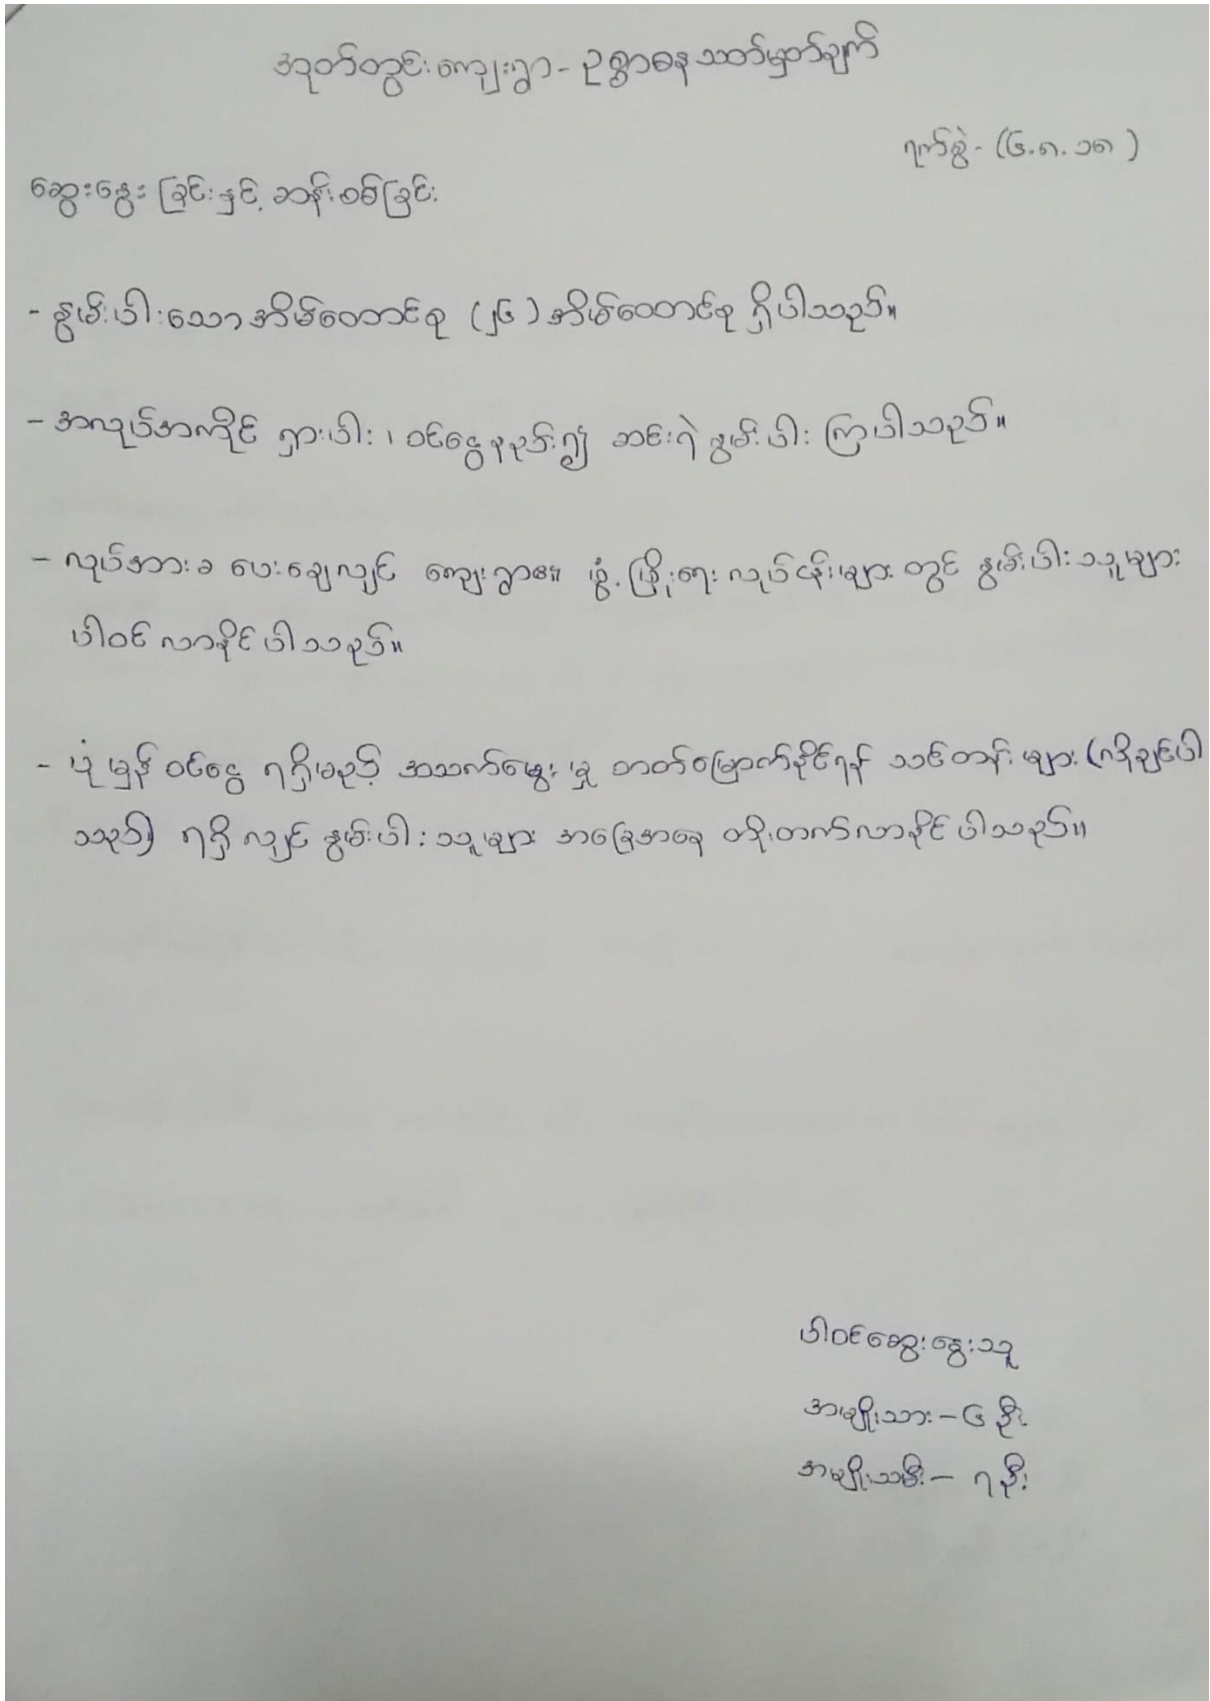 အုတ်တွင်းကျေးရွာ - ဥစ္စာဓနသတ်မှတ်ချက်
ရက်စွဲ - (၆.၈.၁၈)
ဆွေးနွေးခြင်းနှင့် ဆန်းစစ်ခြင်း
- နွမ်းပါးသောအိမ်ထောင်စု (၂၆) အိမ်ထောင်စု ရှိပါသည်။
- အလုပ်အကိုင် ရှားပါး၊ ဝင်ငွေနည်း၍ ဆင်းရဲ နွမ်းပါး ကြပါသည်။
- လုပ်အားခ ပေးချေလျှင် ကျေးရွာ၏ ဖွံ့ဖြိုးရေး လုပ်ငန်းများ တွင် နွမ်းပါးသူများ
ပါဝင် လာနိုင်ပါသည်။
- ပုံမှန် ဝင်ငွေ ရရှိမည့် အသက်မွေးမှု တတ်မြောက်နိုင်ရန် သင်တန်းများ (လိုချင်ပါ
သည်) ရရှိလျှင် နွမ်းပါးသူများ အခြေအနေ တိုးတက်လာနိုင်ပါသည်။
ပါဝင်ဆွေးနွေးသူ
အမျိုးသား - ၆ ဦး
အမျိုးသမီး - ၇ ဦး